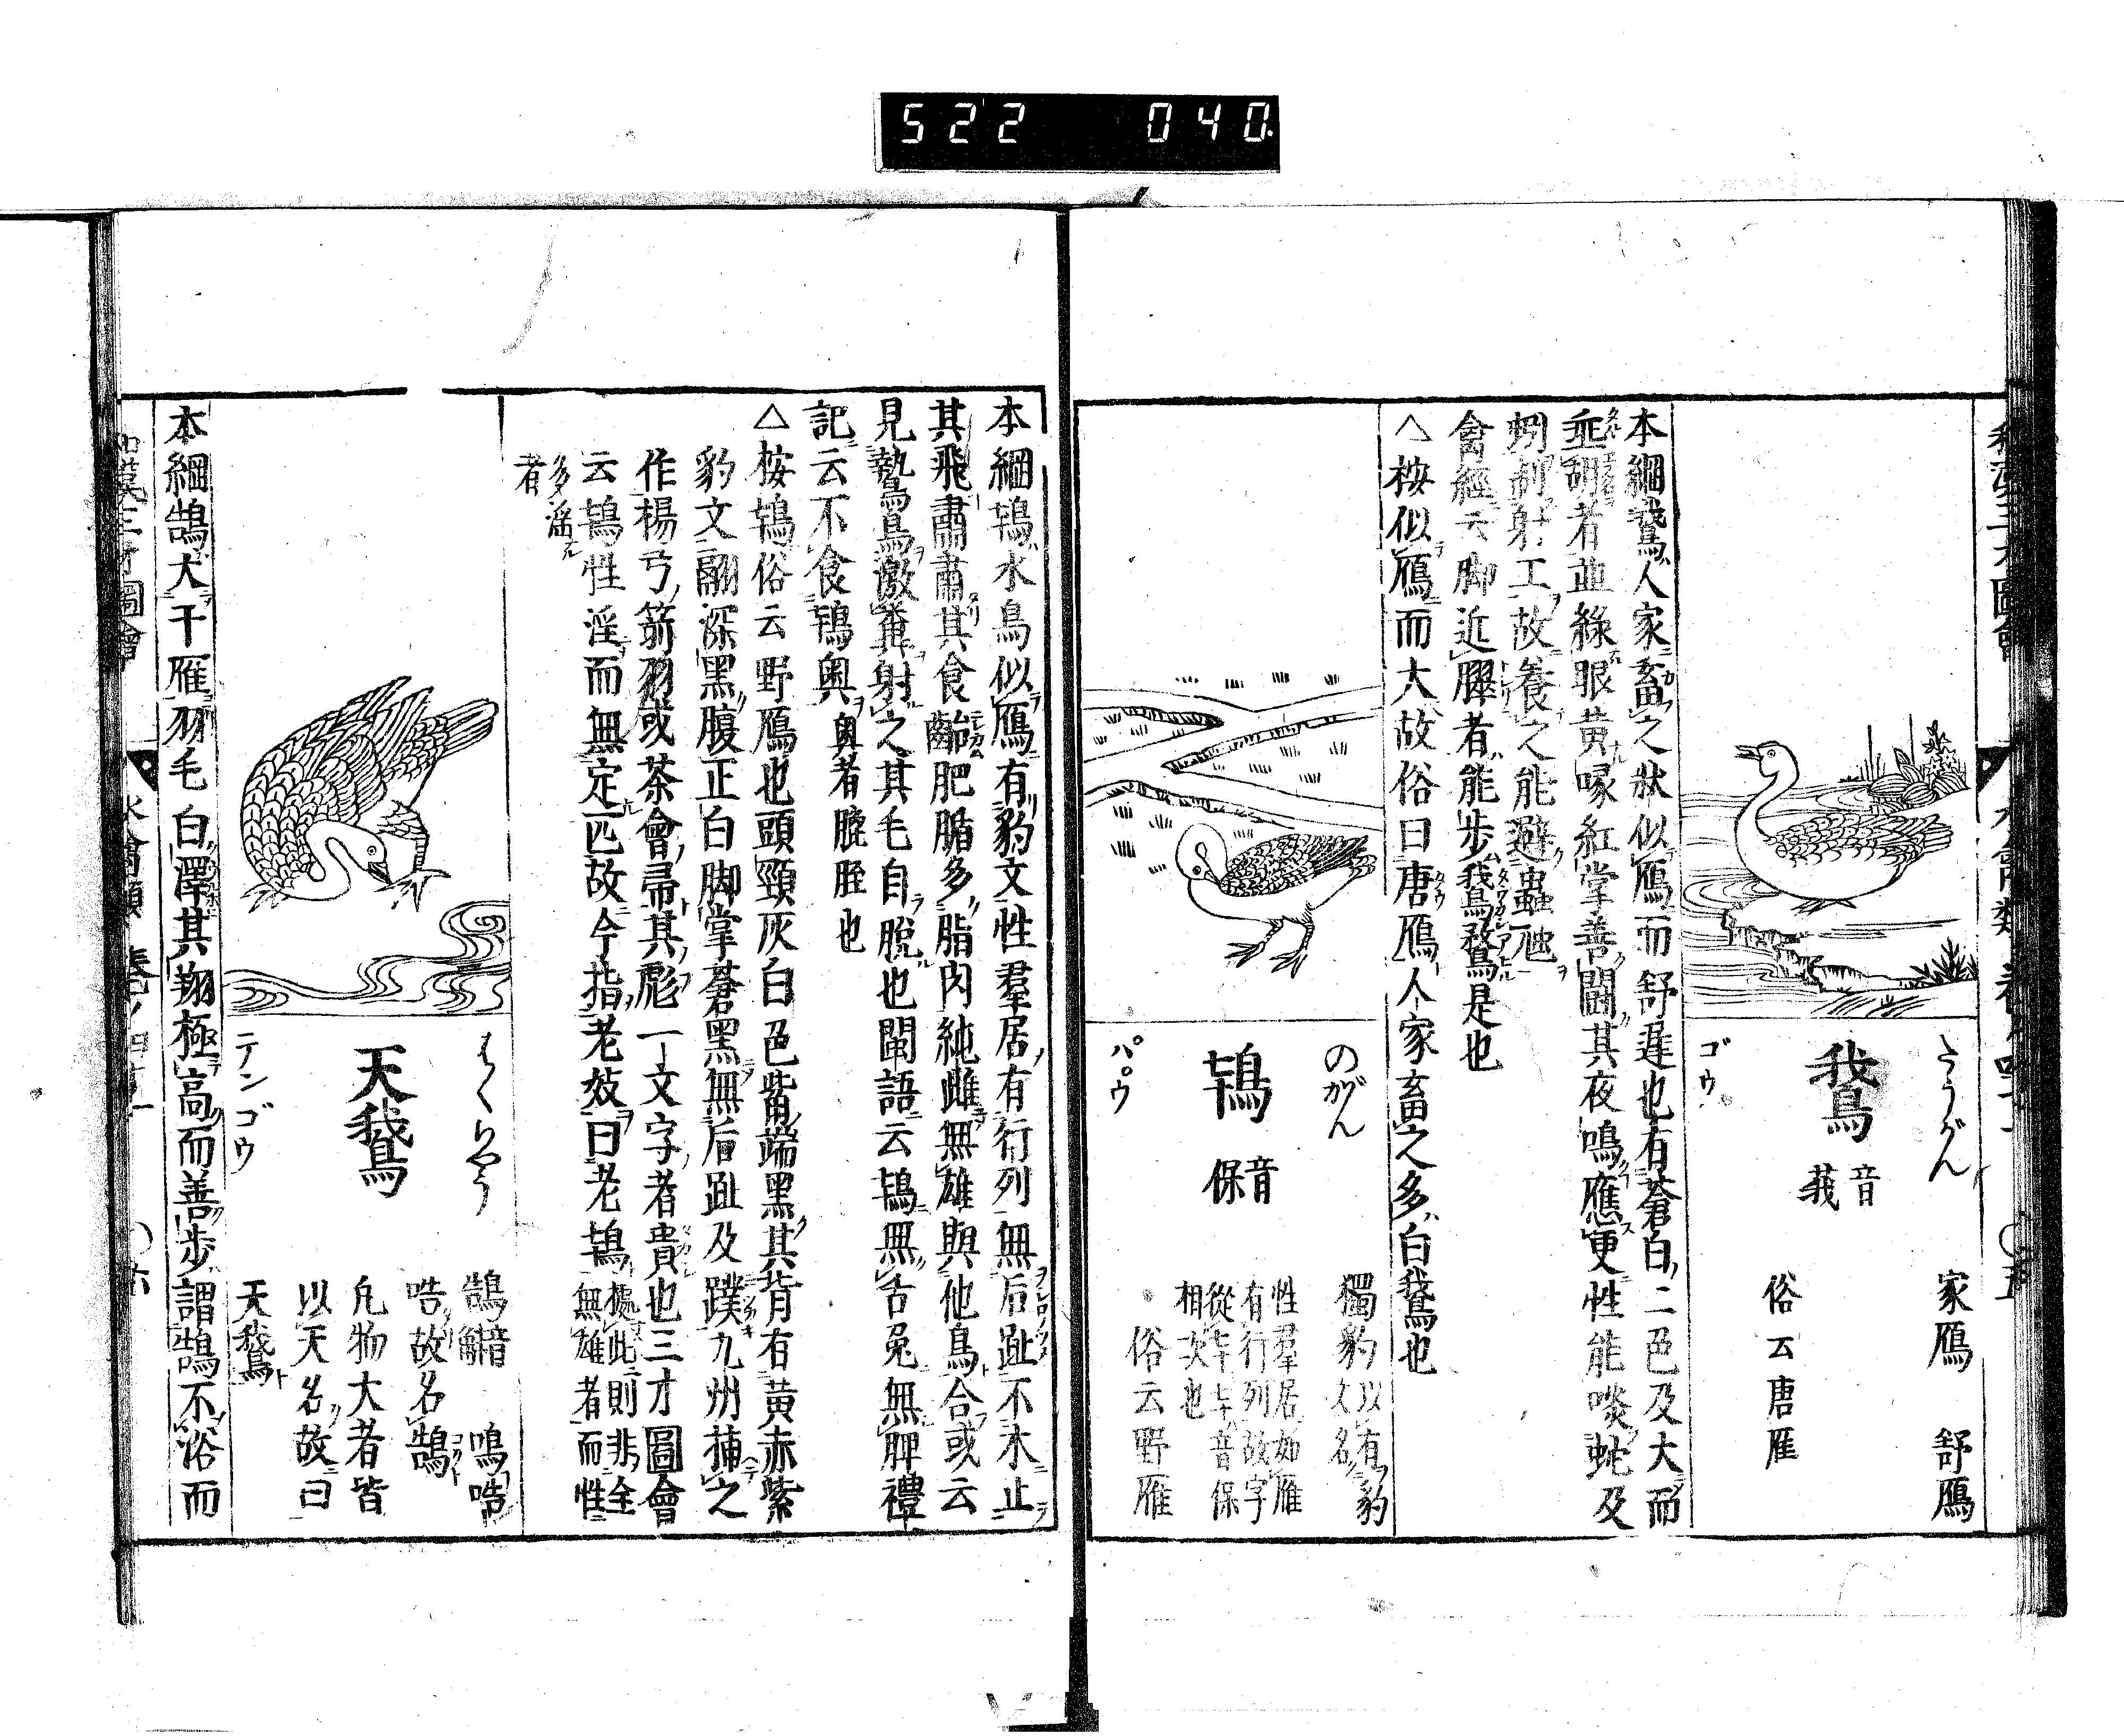 522 040
とうがん
鵞
音
莪
ゴウ
家鴈 舒鴈
俗云唐雁
本綱鵞人家畜之狀似鴈而舒遲也有蒼白二色及大而
埀胡者並綠眼黄喙紅掌善鬪其夜鳴應更性能啖蛇及
蚓制射工故養之能避蟲虵
禽經云脚近臎者能步鵞鶩是也
△按似鴈而大故俗曰唐鴈人家畜之多白鵞也
のがん
鴇
音
保
パウ
獨豹 以有豹
文名
性羣居如雁
有行列故字
從𠤏𠤏音保
相次也
俗云野雁
本綱鴇水鳥似鴈有豹文性羣居有行列無后趾不木止
其飛肅肅其食齝肥腯多脂肉純雌無雄與他鳥合或云
見鷙鳥激糞射之其毛自脫也閩語云鴇無舌兔無脾禮
記云不食鴇奧 奧者脾胵也
△按鴇俗云野鴈也頭頸灰白色觜端黑其背有黄赤紫
豹文翮深黑腹正白脚掌蒼黑無后趾及蹼九州捕之
作楊弓箭羽或茶會帚其彪一文字者貴也三才圖會
云鴇性淫而無定匹故今指老妓曰老鴇 據此則非全
無雄者而性
多滛
者
はくちやう
天鵞
テンゴウ
鵠 音斛 鳴哠
哠故名鵠
凡物大者皆
以天名故曰
天鵞
本綱鵠大于雁羽毛白澤其翔極高而善步謂鵠不浴而
和漢三才圖會
水禽類 卷ノ四十一
〇六